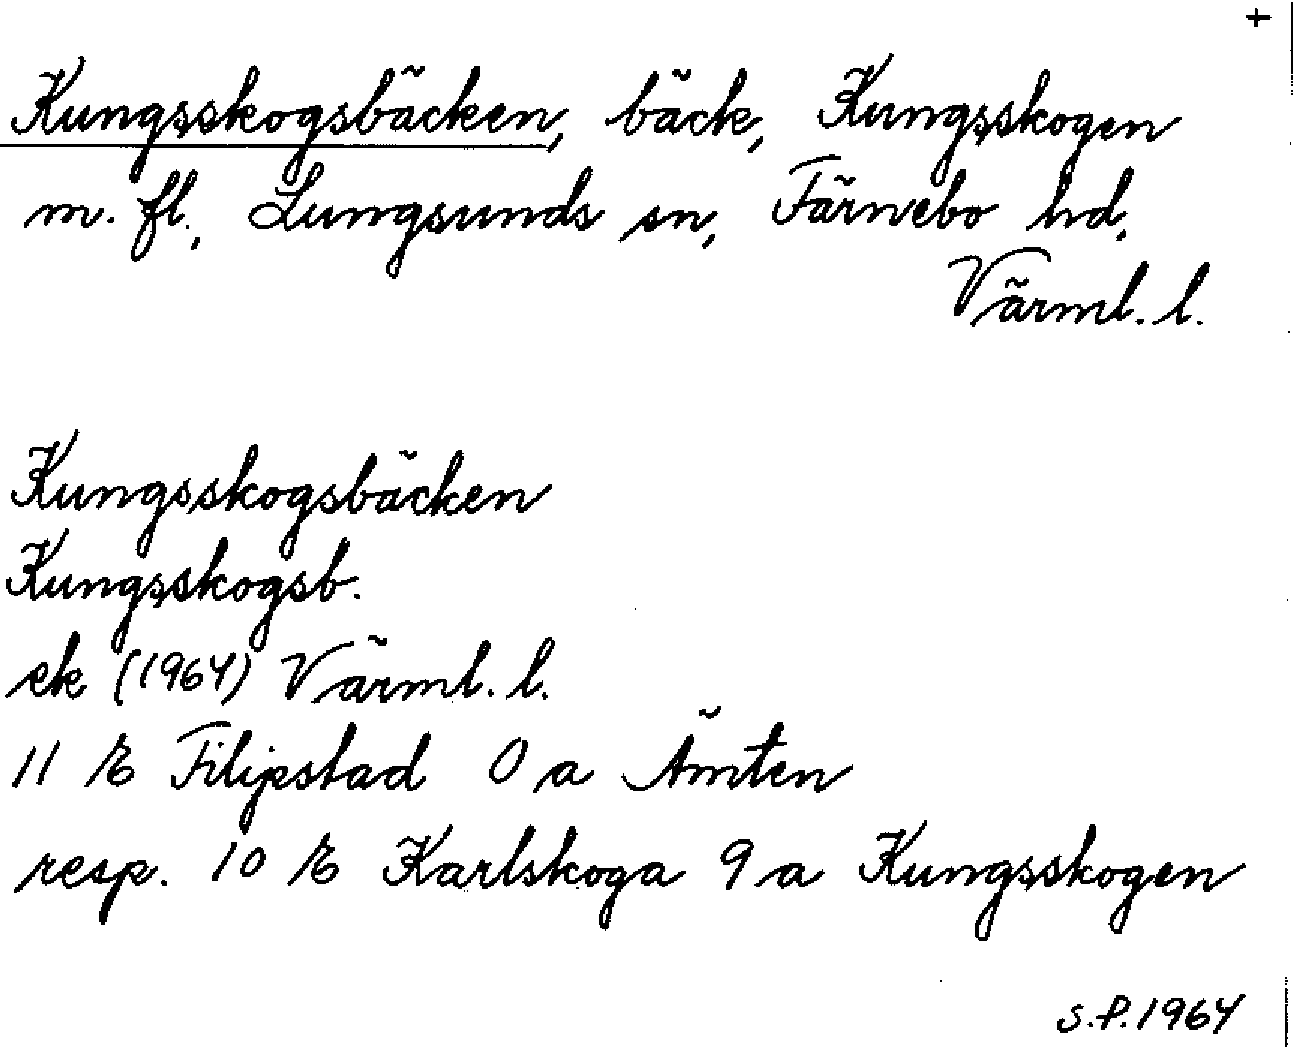 +
Kungsskogsbäcken, bäck, Kungsskogen
m. fl., Lungsunds sn, Färnebo hd,
Värml. l.
Kungsskogsbäcken
Kungsskogsb.
ek (1964) Värml. l.
11 E Filipstad 0 a Ämten
resp. 10 E Karlskoga 9 a Kungsskogen
S.P. 1964